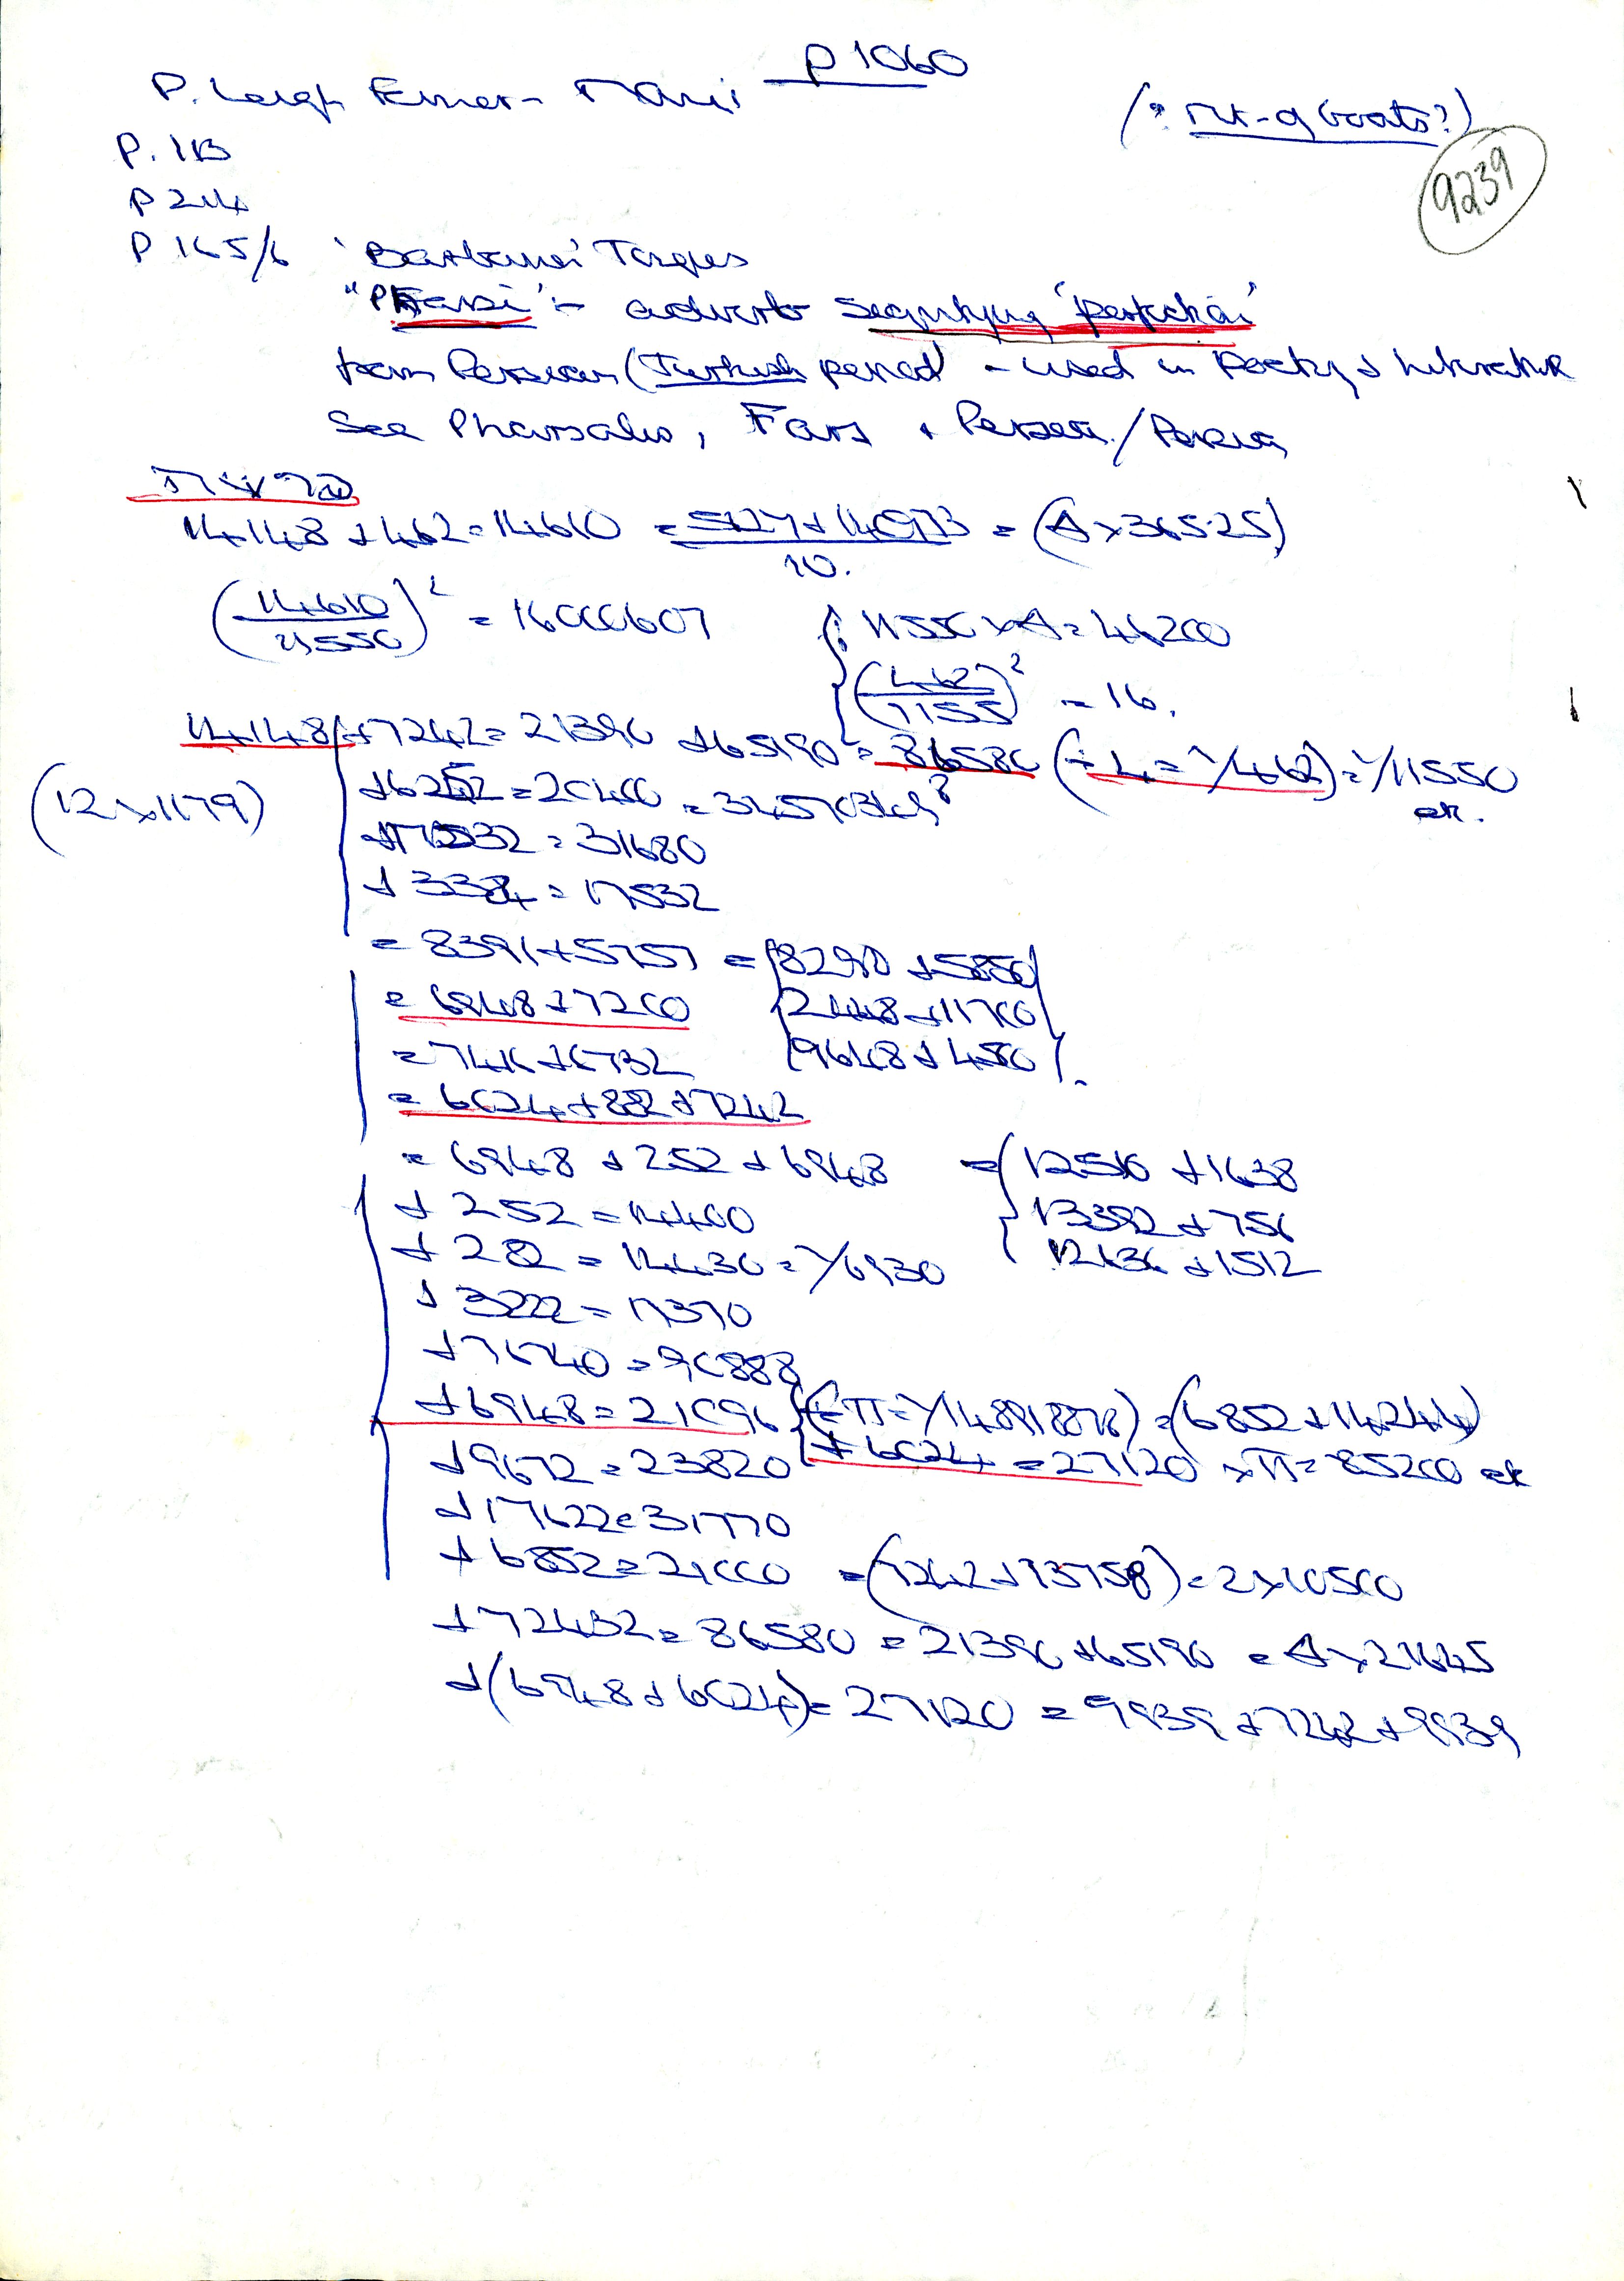 P 1060
P. Leigh Fermor - Mani
(? Mt-goats?)
9239
P. 113
P 244
P 165/6 'Barbaroi' Torques
"Pharsi" - adverb signifying 'perfection'
from Persian (Turkish period) - used in Poetry & Literature
See Pharsalus, Fars + Perseus/Persia
14148 + 462 = 14610 = 5127 + 140973 = (4 x 365.25)
10.
(14610/11550)² = 16000607
11550 x 4 = 46200
(462/1155)² = 16.
14148 + 7242 = 21390 + 65190 = 86580 (÷ 4 = √462) = √11550 etc.
(12 x 1179)
+ 6252 = 20400
+ 17532 = 31680
+ 3384 = 17532
= 8391 + 5757 = (8290 + 5850
= 6948 + 7200 2448 + 11700
= 7416 + 6732 9648 + 4500
= 6024 + 882 + 7242
= 6948 + 252 + 6948 = (12510 + 1638
+ 252 = 14400 13392 + 756
+ 282 = 14430 = √6930 12636 + 1512
+ 3222 = 17370
+ 76740 = 90888
+ 6948 = 21096 (÷ π = √148918878) = (6852 + 14244)
+ 9672 = 23820 + 6024 = 27120 x π = 85200 etc
+ 17622 = 31770
+ 6852 = 21000 = (7242 + 13758) = 2 x 10500
+ 72432 = 86580 = 21390 + 65190 = 4 x 21645
+ (6948 + 6024) = 27120 = 9939 + 7242 + 9939